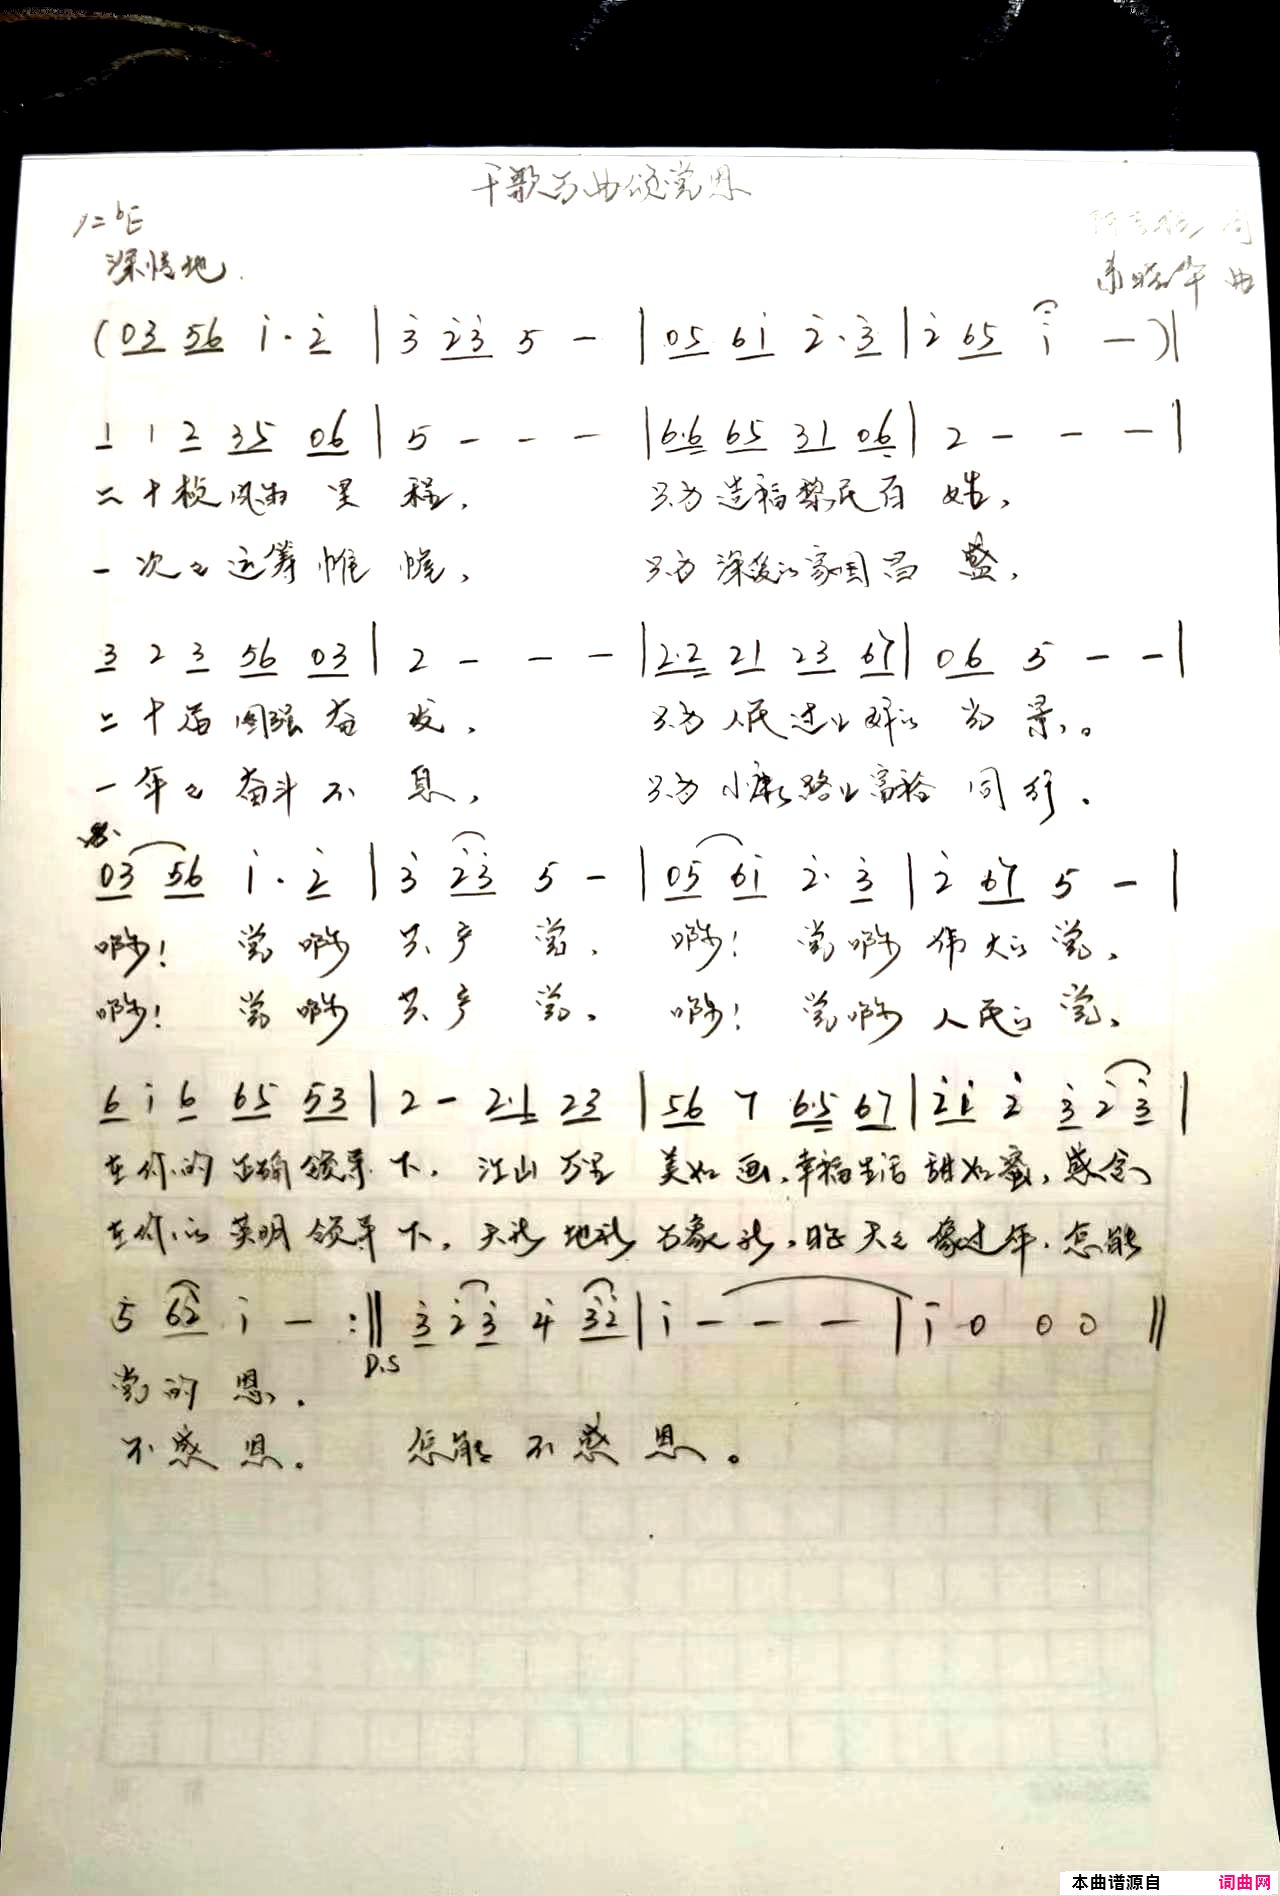 千歌万曲颂党恩
1=bE
词
深情地.
曲
(03 56 i· 2̇ | 3̇ 2̇3̇ 5 - | 05 6i 2̇· 3̇ | 2̇ 65 i - )|
1 1 2 35 06 | 5 - - - | 6·6 65 31 06̣ | 2 - - - |
二十桢风雨 里 程, 只为造福黎民百 姓,
一 次次运筹帷 幄, 只为 家国昌 盛,
3 2 3 56 03 | 2 - - - | 2·2 21 23 67 | 06 5 - - |
二十届图强奋 发, 只为人民过上好的 光景。
一年年奋斗不 息, 只为小康路上富裕 同行.
03 56 i· 2̇ | 3̇ 2̇3̇ 5 - | 05 6i 2̇· 3̇ | 2̇ 67 5 - |
啊! 党啊 共产 党, 啊! 党啊 伟大的党,
啊! 党啊 共产 党, 啊! 党啊 人民的党,
6 i 6 65 53 | 2 - 2·1 23 | 56 7 6·5 67 | 2̇i 2̇ 3̇ 2̇ 3̇ |
在你的正确领导下, 江山万里 美如画,幸福生活甜如蜜,感念
在你的英明领导下, 天新地新万象新, 天天像过年,怎能
5 62̇ i - :‖ 3̇ 2̇ 3̇ 4̇ 3̇2̇ | i - - - | i 0 0 0 ‖
D.S
党的 恩.
不感 恩. 怎能 不感 恩。
本曲谱源自 词曲网